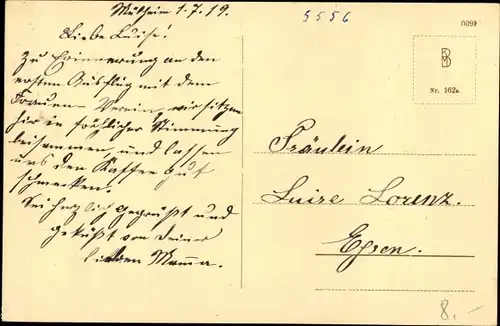 Mülheim 1.7.19.
5556
0091
Liebe Luise!
Zu Erinnerung an den
ersten Ausflug mit dem
Frauen-Verein, wir sitzen
hir in fröhlicher Stimmung
beisammen, und lassen
uns den Kaffee gut
schmecken.
Sei herzlich gegrüßt und
geküßt von deiner
lieben Mamma.
BMD
Nr. 162a.
Fräulein
Luise Lorenz.
Essen.
8.-